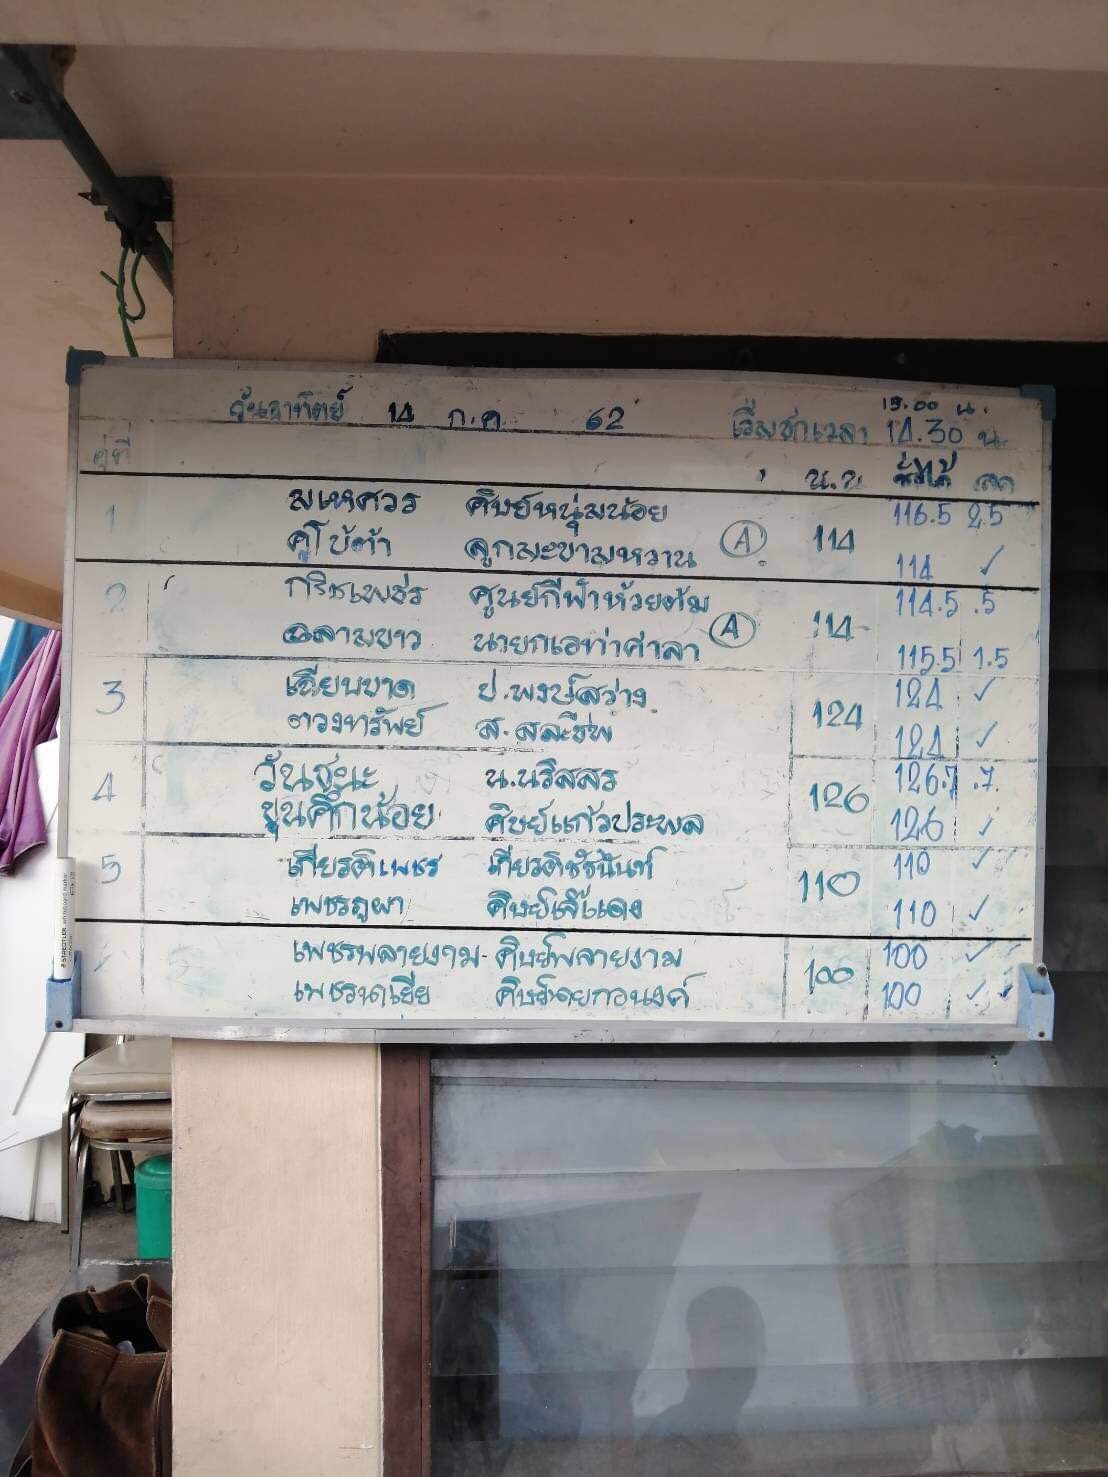 วันอาทิตย์ 14 ก.ค 62 เริ่มชกเวลา 14.30 น.
15.00 น.
คู่ที่ น.น. ชั่งได้ ลด
1 มเหศวร ศิษย์หนุ่มน้อย 116.5 2.5
คูโบต้า ลูกมะขามหวาน A 114 114 ✓
2 กริชเพชร ศูนย์กีฬาห้วยต้ม 114.5 .5
ฉลามขาว นายกเอท่าศาลา A 114 115.5 1.5
3 เฉียบขาด ป.พงษ์สว่าง 124 ✓
ตวงทรัพย์ 124 124 ✓
4 วันชนะ น.นริสสร 126.7 .7
ขุนศึกน้อย ศิษย์แก้วประพล 126 126 ✓
5 เกียรติเพชร 110 ✓
เพชรภูผา 110 110 ✓
เพชรพลายงาม ศิษย์พลายงาม 100 ✓
100 100 ✓
STAEDTLER